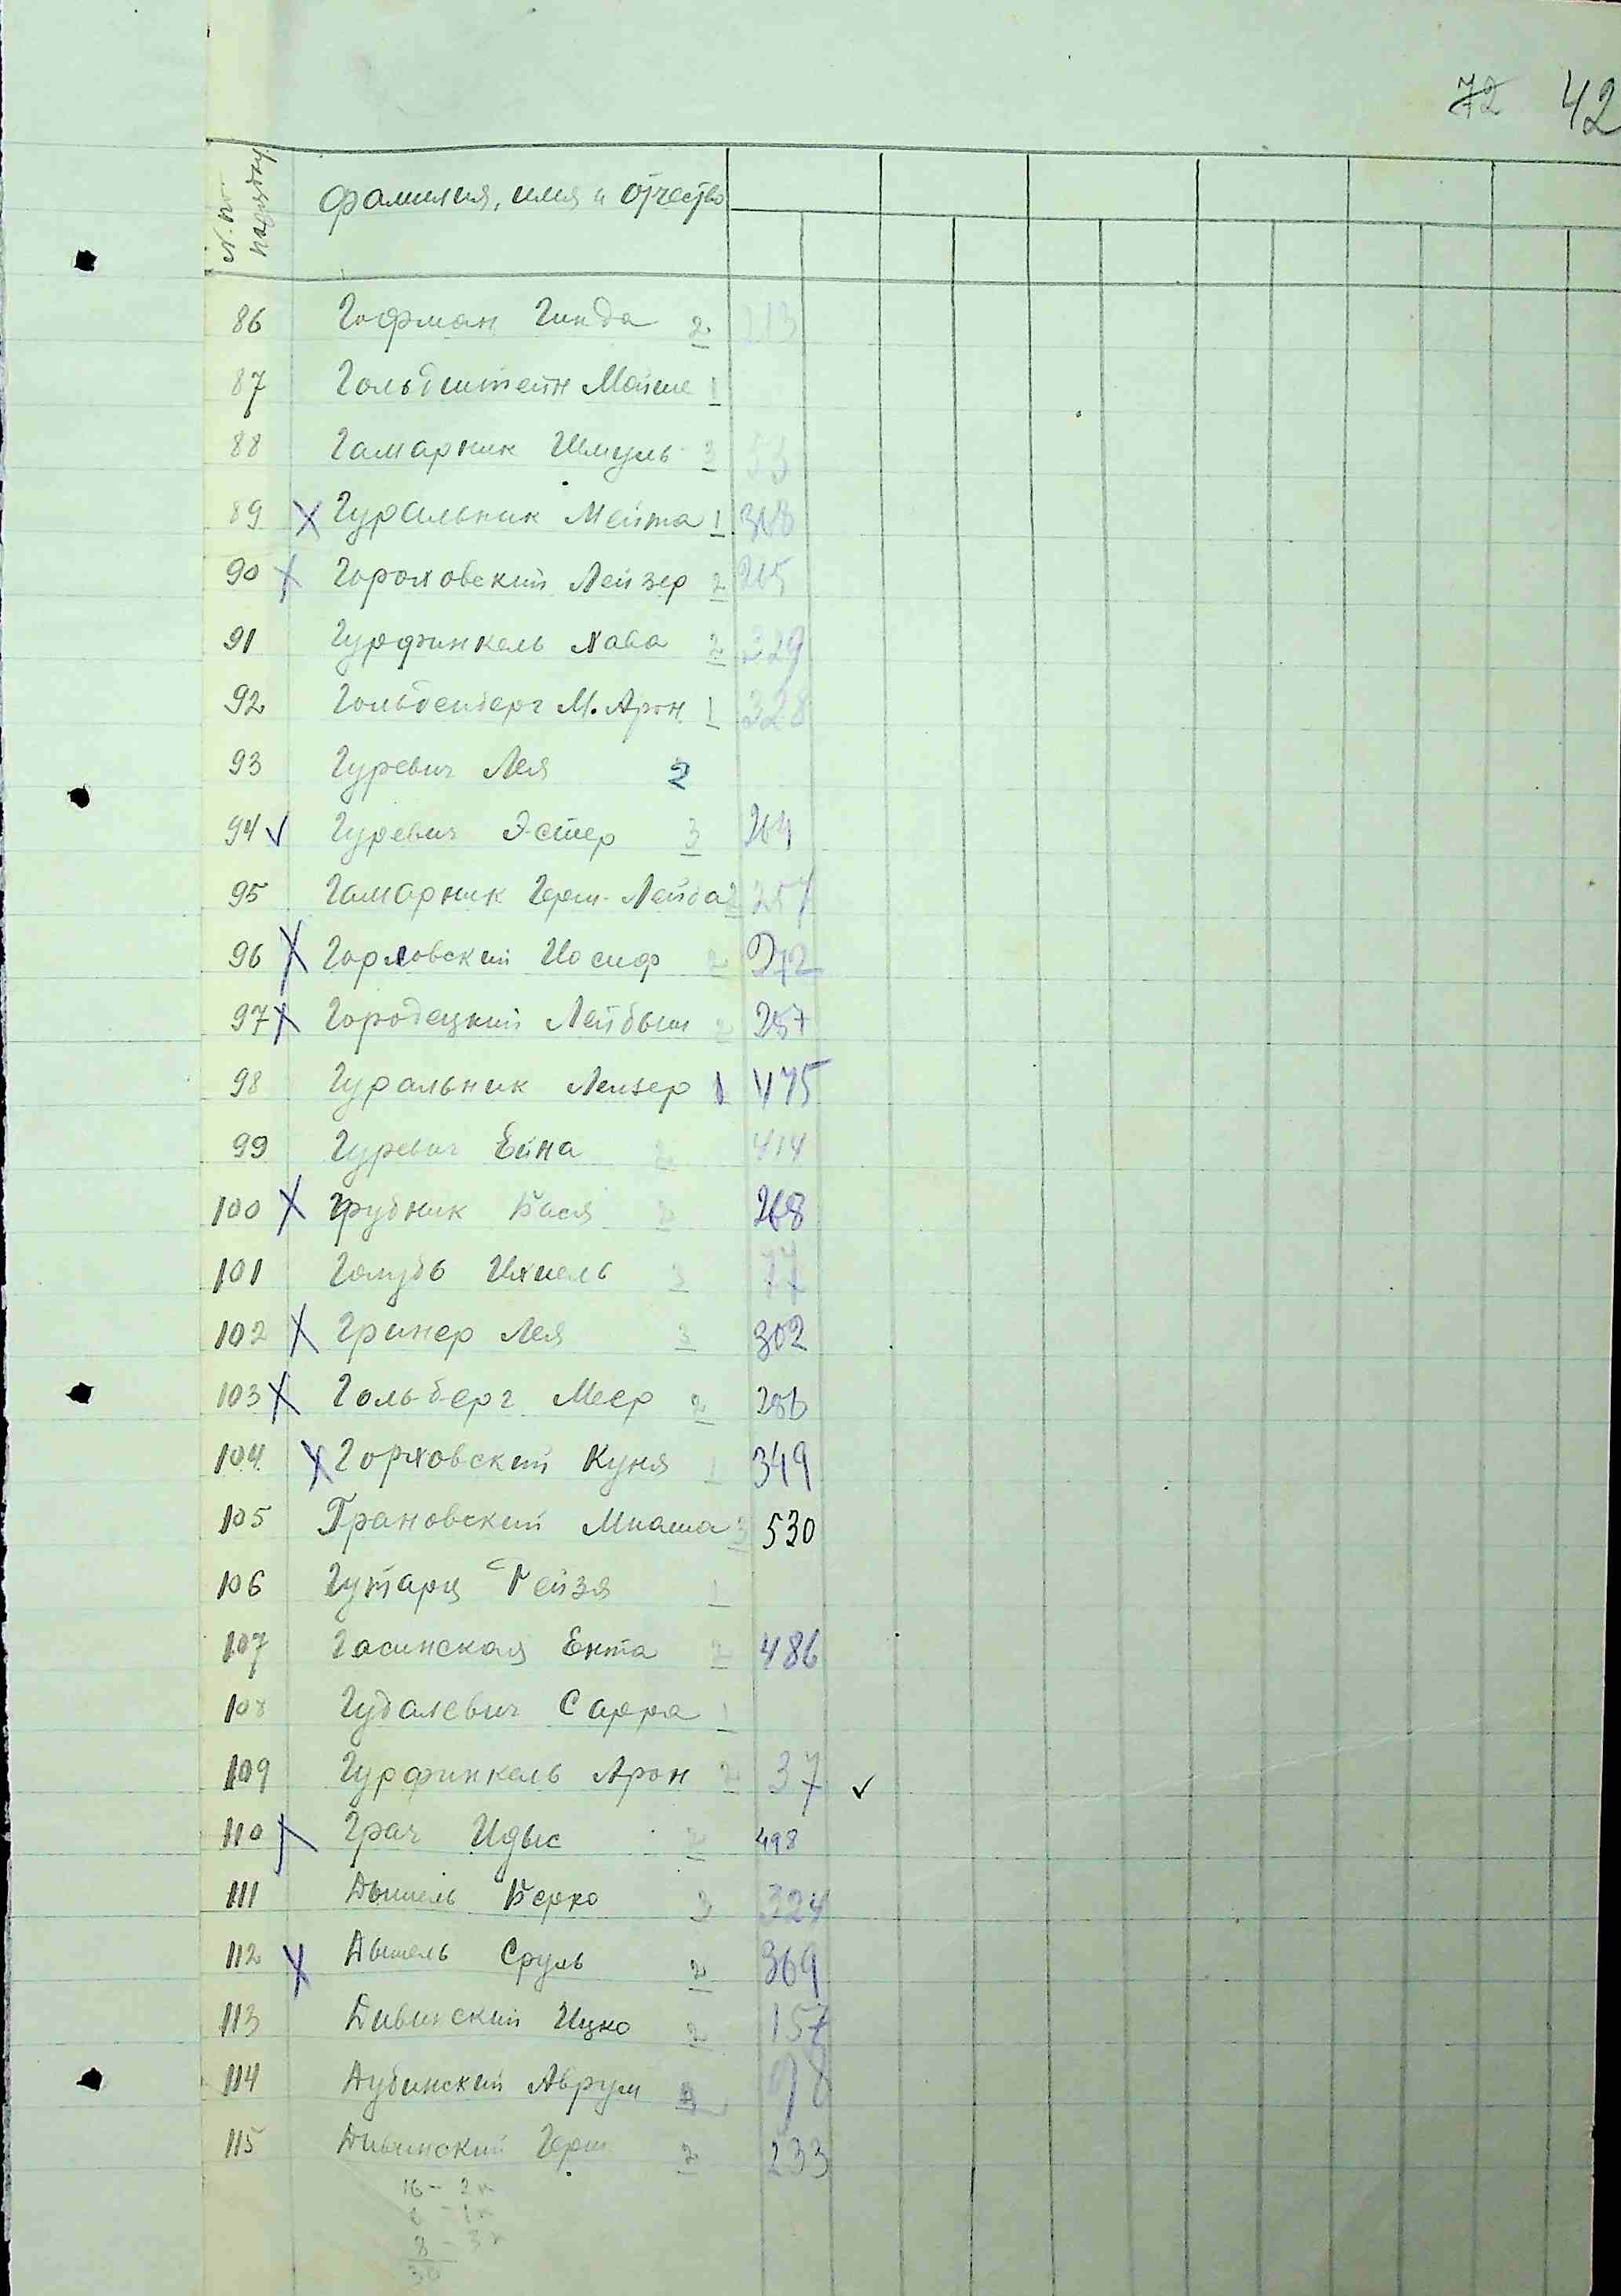 72 42
№ по порядку
Фамилия, имя и отчество
86 Гофман Гинда 2 213
87 Гольдштейн Мойше 1
88 Гамарник Шмуль 3 53
89 X Гуральник Мейта 1 308
90 X Гороховский Лейзер 2 265
91 Гурфинкель Хава 2 329
92 Гольденберг М. Арон 1 328
93 Гуревич Лея 2
94 ✓ Гуревич Эстер 3 264
95 Гамарник Герш-Лейба 2 257
96 X Горховский Иосиф 2 272
97 X Городецкий Лейбыш 2 257
98 Гуральник Лейзер 1 475
99 Гуревич Ейна 2 414
100 X Грубник Бася 2 268
101 Голубь Ихиель 3 77
102 X Гринер Лея 3 302
103 X Гольберг Меер 2 256
104 X Горховский Куня 1 349
105 Грановский Мнаша 3 530
106 Гутарц Рейзя 1
107 Гасинская Ента 2 486
108 Гудалевич Сарра 1
109 Гурфинкель Арон 2 37 ✓
110 X Грач Идыс 2 498
111 Дышель Берко 3 324
112 X Дышель Сруль 2 369
113 Дивинский Ицко 2 157
114 Дубинский Аврум 98
115 Дивинский Герш 2 233
16 - 2
6 - 1
8 - 3
30